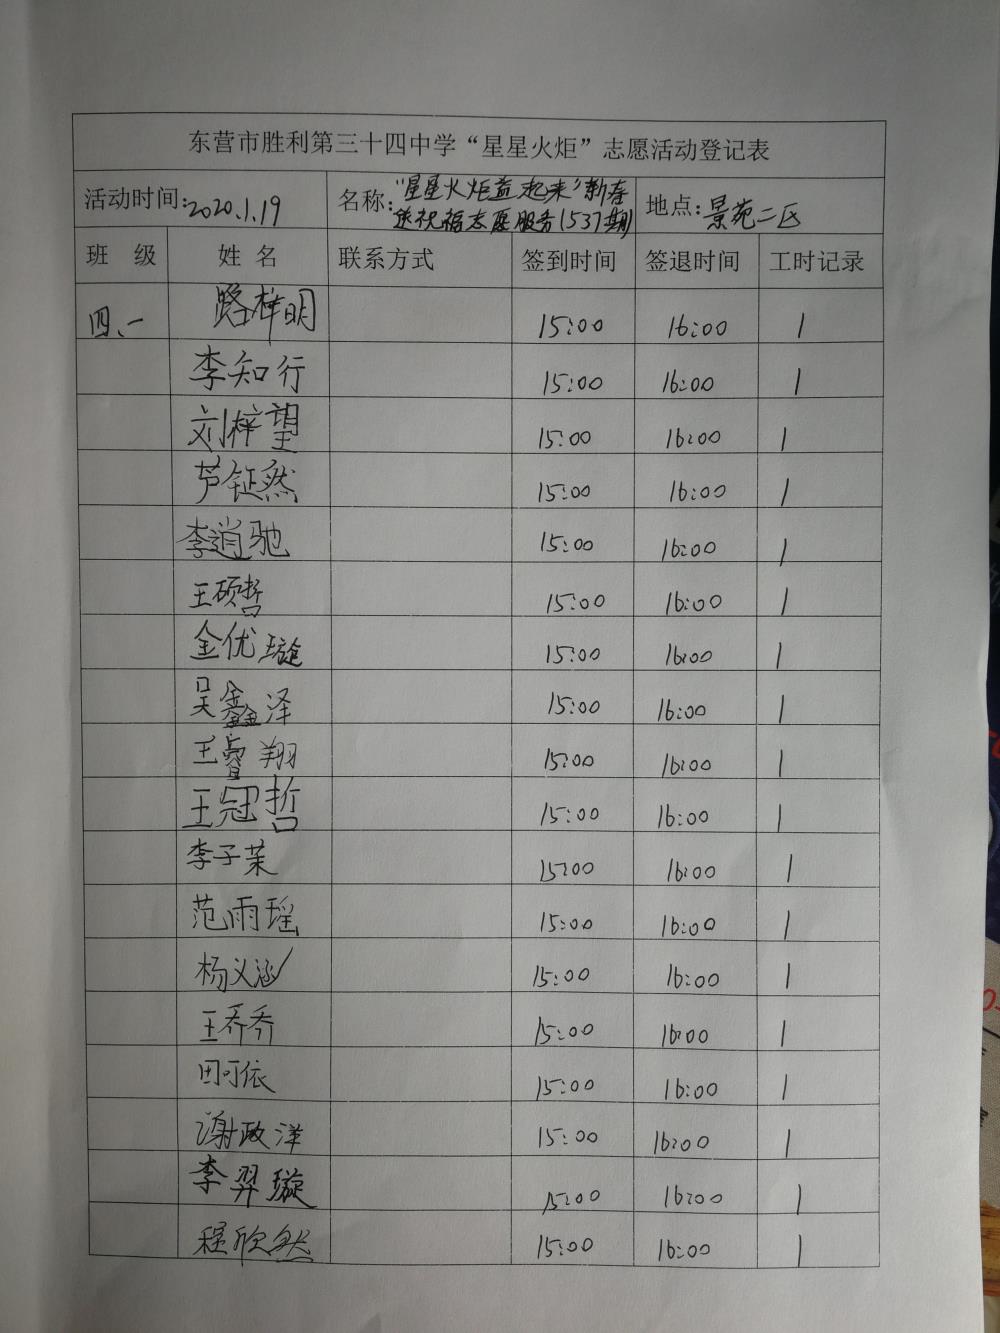 东营市胜利第三十四中学“星星火炬”志愿活动登记表
活动时间:2020.1.19 名称:“星星火炬益起来”新春送祝福志愿服务(537期) 地点:景苑二区
班 级 姓 名 联系方式 签到时间 签退时间 工时记录
四、一 路梓明 15:00 16:00 1
李知行 15:00 16:00 1
刘梓望 15:00 16:00 1
芦钲然 15:00 16:00 1
李逍驰 15:00 16:00 1
王硕哲 15:00 16:00 1
金优璇 15:00 16:00 1
吴鑫泽 15:00 16:00 1
王睿翔 15:00 16:00 1
王冠哲 15:00 16:00 1
李子茉 15:00 16:00 1
范雨瑶 15:00 16:00 1
杨义涵 15:00 16:00 1
王乔乔 15:00 16:00 1
田可依 15:00 16:00 1
谢政洋 15:00 16:00 1
李羿璇 15:00 16:00 1
程欣然 15:00 16:00 1